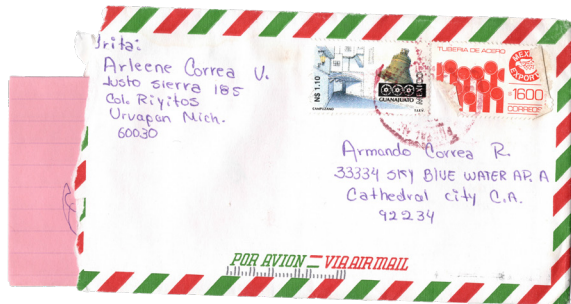 Srita:
Arleene Correa V.
Justo Sierra 185
Col. Riyitos
Urvapan Mich.
60030
N$ 1.10
GUANAJUATO
MEXICO
TUBERIA DE ACERO
MEXICO
EXPORTA
$1600
CORREOS
Armando Correa R.
33334 SKY BLUE WATER AP. A
Cathedral city C.A.
92234
POR AVION VIA AIR MAIL